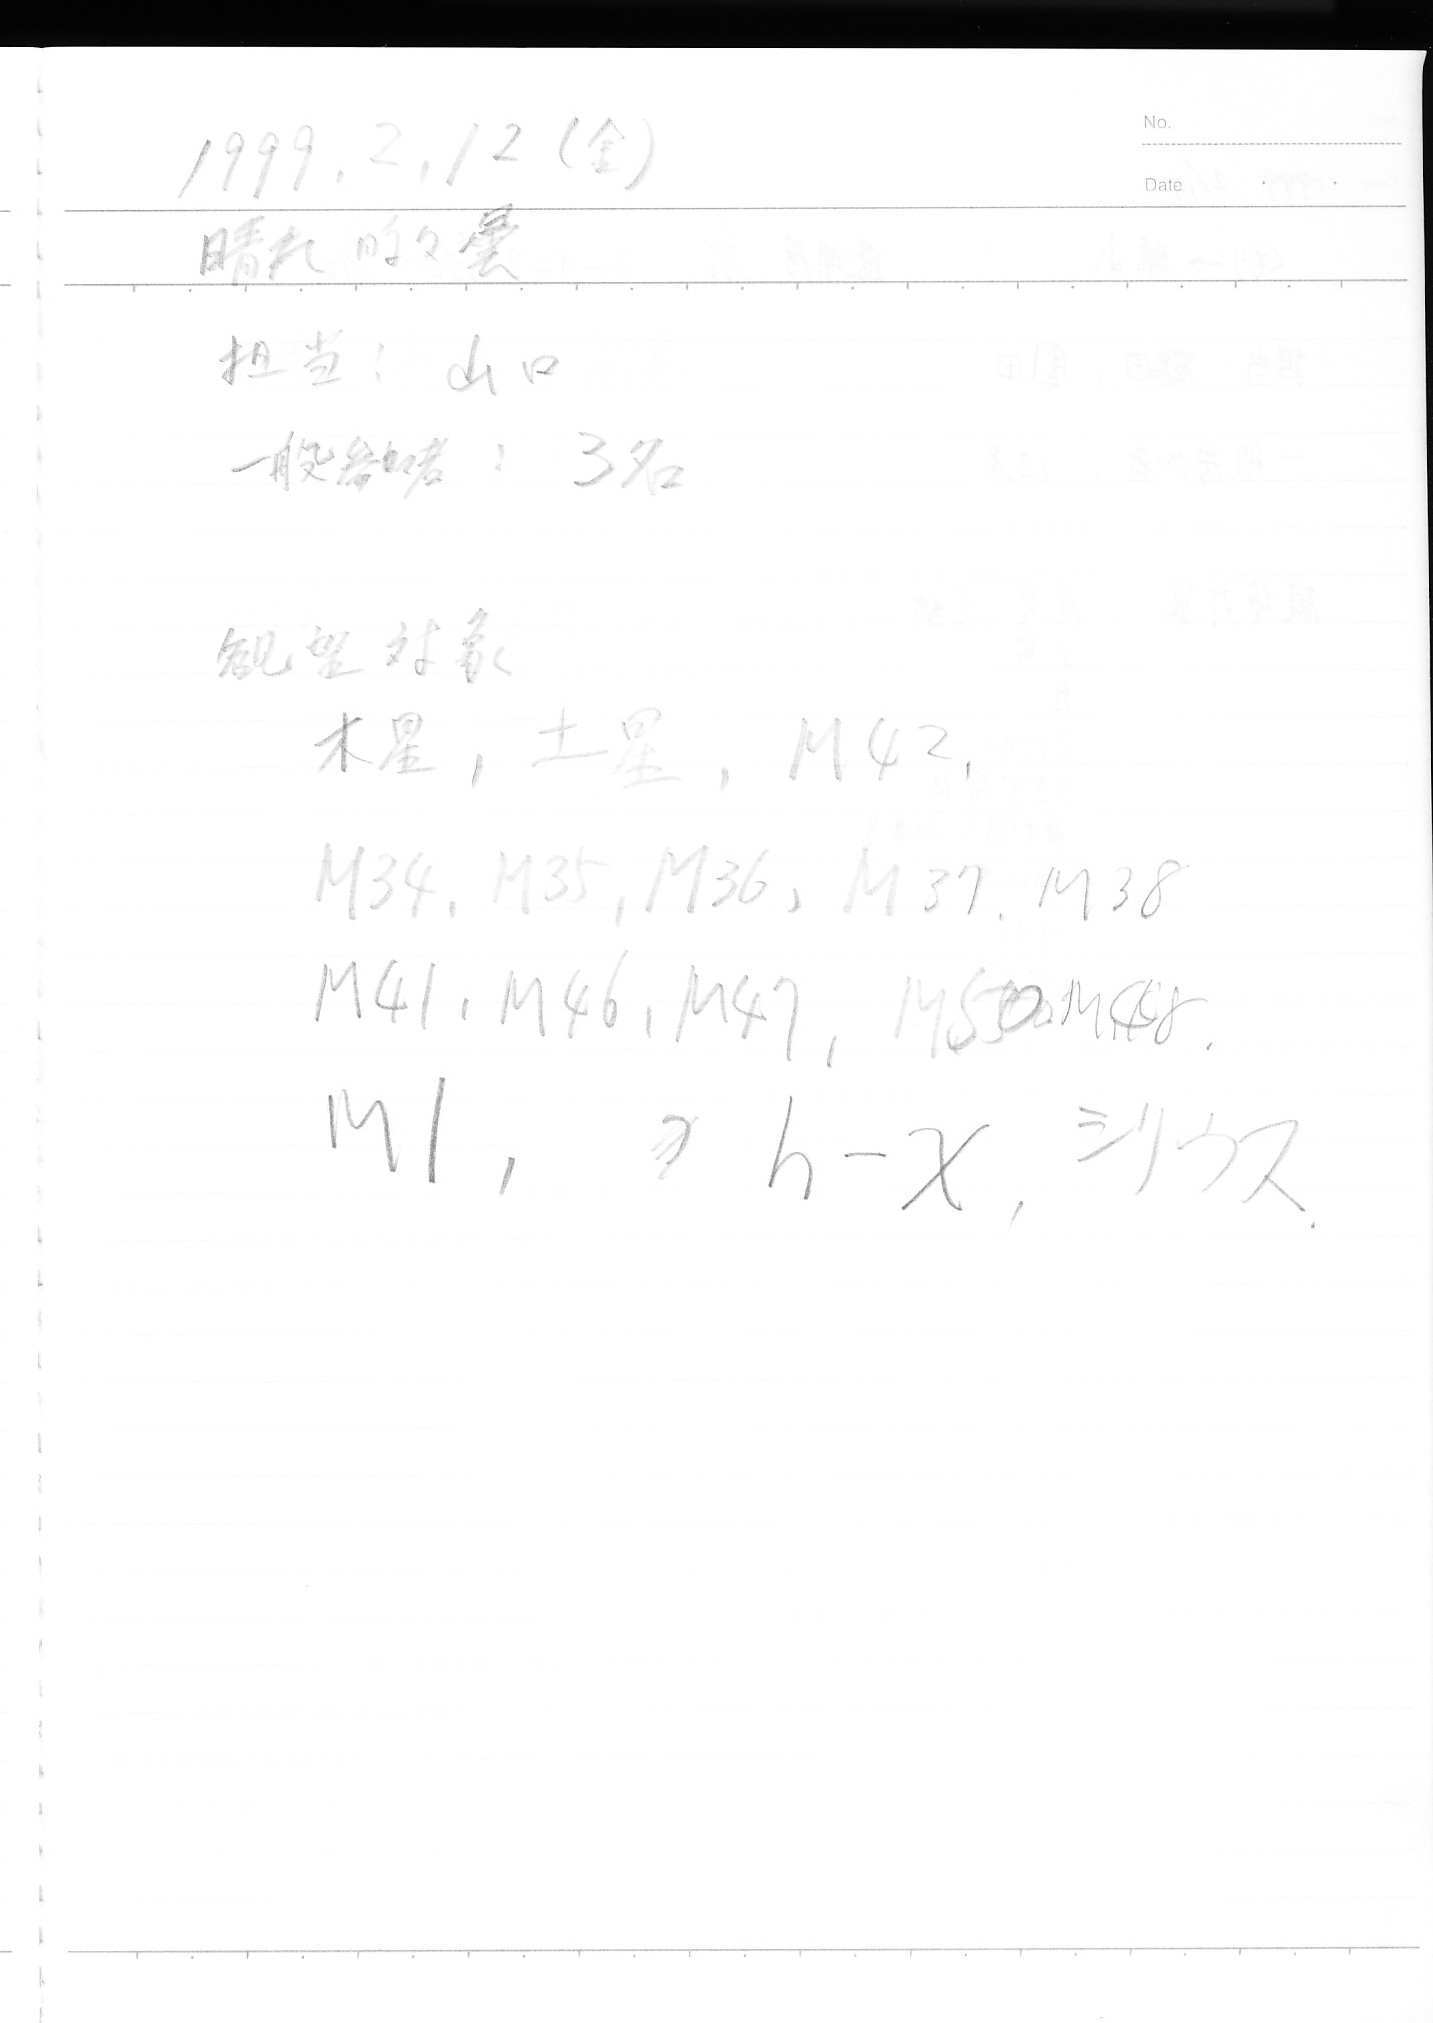 No.
1999.2.12(金)
Date
晴れ時々曇
担当: 山口
一般参加者: 3名
観望対象
木星, 土星, M42,
M34, M35, M36, M37, M38
M41, M46, M47, M50, M48.
M1, h-χ, シリウス.